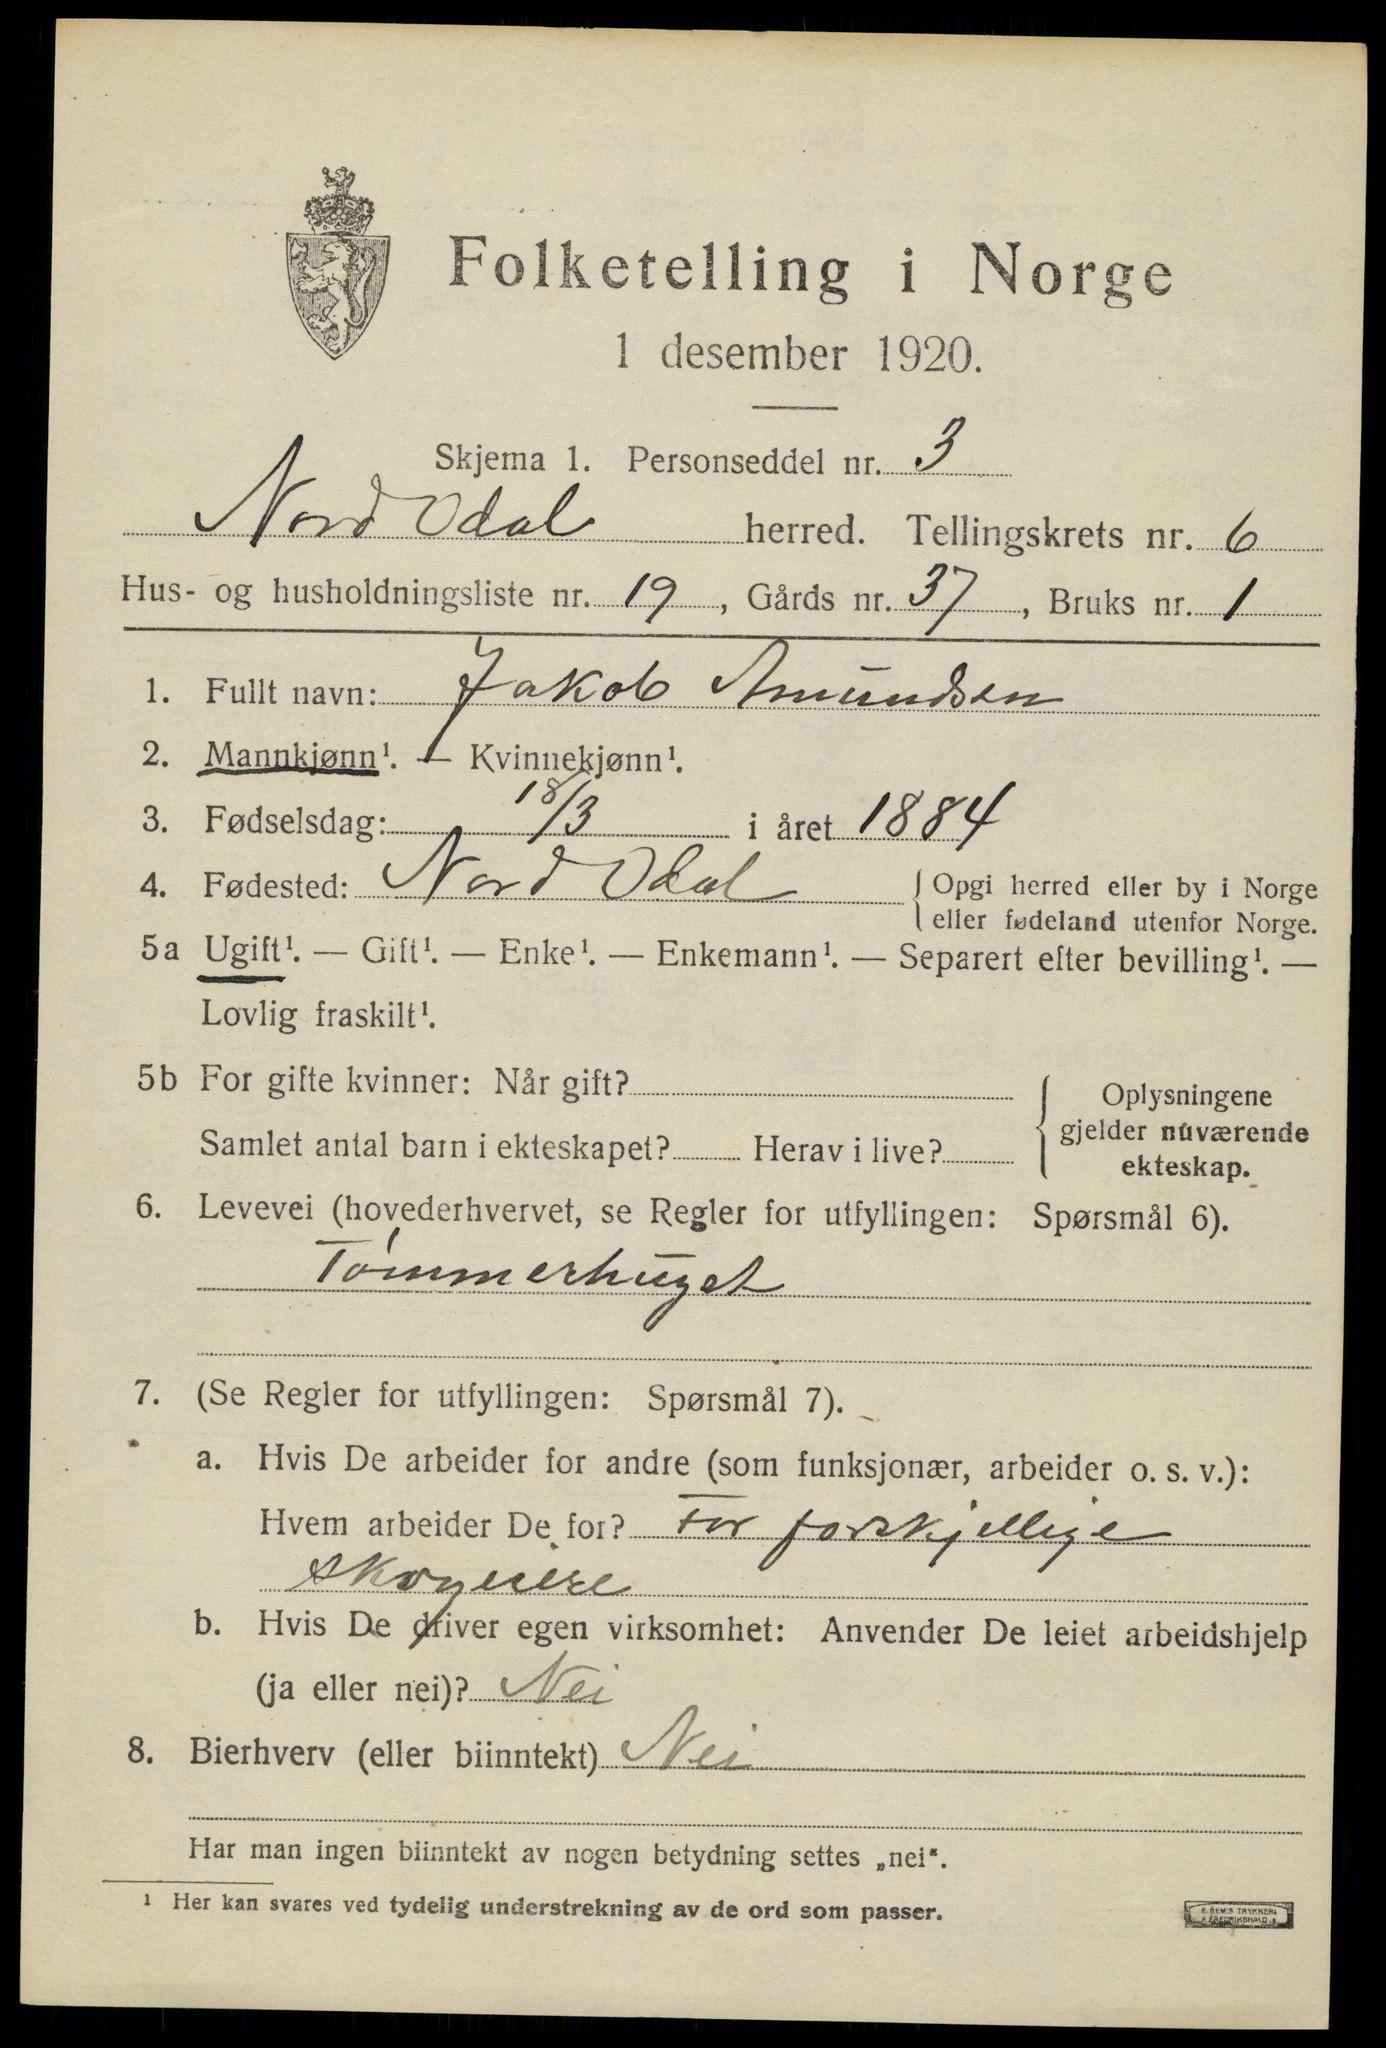 Folketelling i Norge
1 desember 1920.
Skjema 1. Personseddel nr. 3
Nord Odal herred. Tellingskrets nr. 6
Hus- og husholdningsliste nr. 19, Gårds nr. 37, Bruks nr. 1
1. Fullt navn: Jakob Amundsen
2. Mannkjønn¹. — Kvinnekjønn¹.
3. Fødselsdag: 18/3 i året 1884
4. Fødested: Nord Odal { Opgi herred eller by i Norge
eller fødeland utenfor Norge.
5a Ugift¹. — Gift¹. — Enke¹. — Enkemann¹. — Separert efter bevilling¹. —
Lovlig fraskilt¹.
5b For gifte kvinner: Når gift?
Samlet antal barn i ekteskapet? Herav i live?
Oplysningene
gjelder nuværende
ekteskap.
6. Levevei (hovederhvervet, se Regler for utfyllingen: Spørsmål 6).
Tømmerhuget
7. (Se Regler for utfyllingen: Spørsmål 7).
a. Hvis De arbeider for andre (som funksjonær, arbeider o. s. v.):
Hvem arbeider De for? For forskjellige
skogeiere
b. Hvis De driver egen virksomhet: Anvender De leiet arbeidshjelp
(ja eller nei)? Nei
8. Bierhverv (eller biinntekt) Nei
Har man ingen biinntekt av nogen betydning settes „nei".
¹ Her kan svares ved tydelig understrekning av de ord som passer.
E. SEM'S TRYKKERI
FREDRIKSHALD